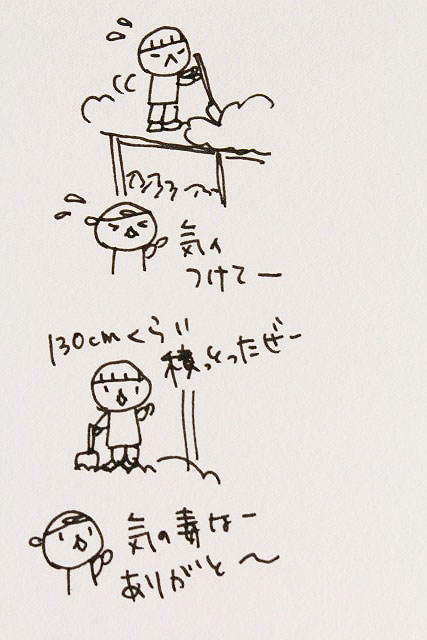 気ィ
つけてー
130cmくらい
積っとったぜー
気の毒なー
ありがと〜